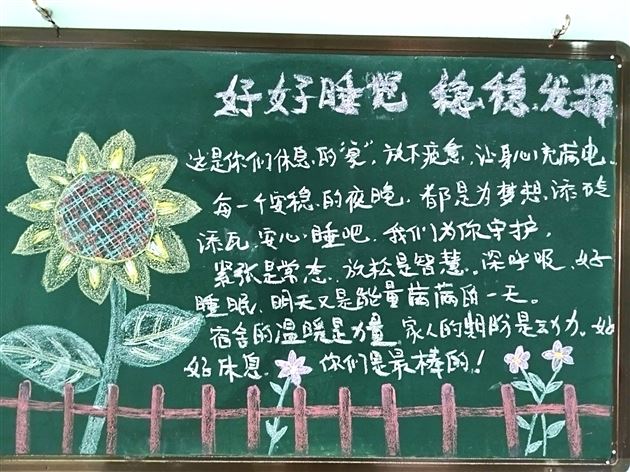 好好睡觉 稳稳发挥
这是你们休息的"窝",放下疲惫,让身心充满电。
每一个安稳的夜晚,都是为梦想添砖
添瓦,安心睡吧,我们为你守护。
紧张是常态,放松是智慧。深呼吸、好
睡眠,明天又是能量满满的一天。
宿舍的温暖是力量,家人的期盼是动力。好
好休息,你们是最棒的!